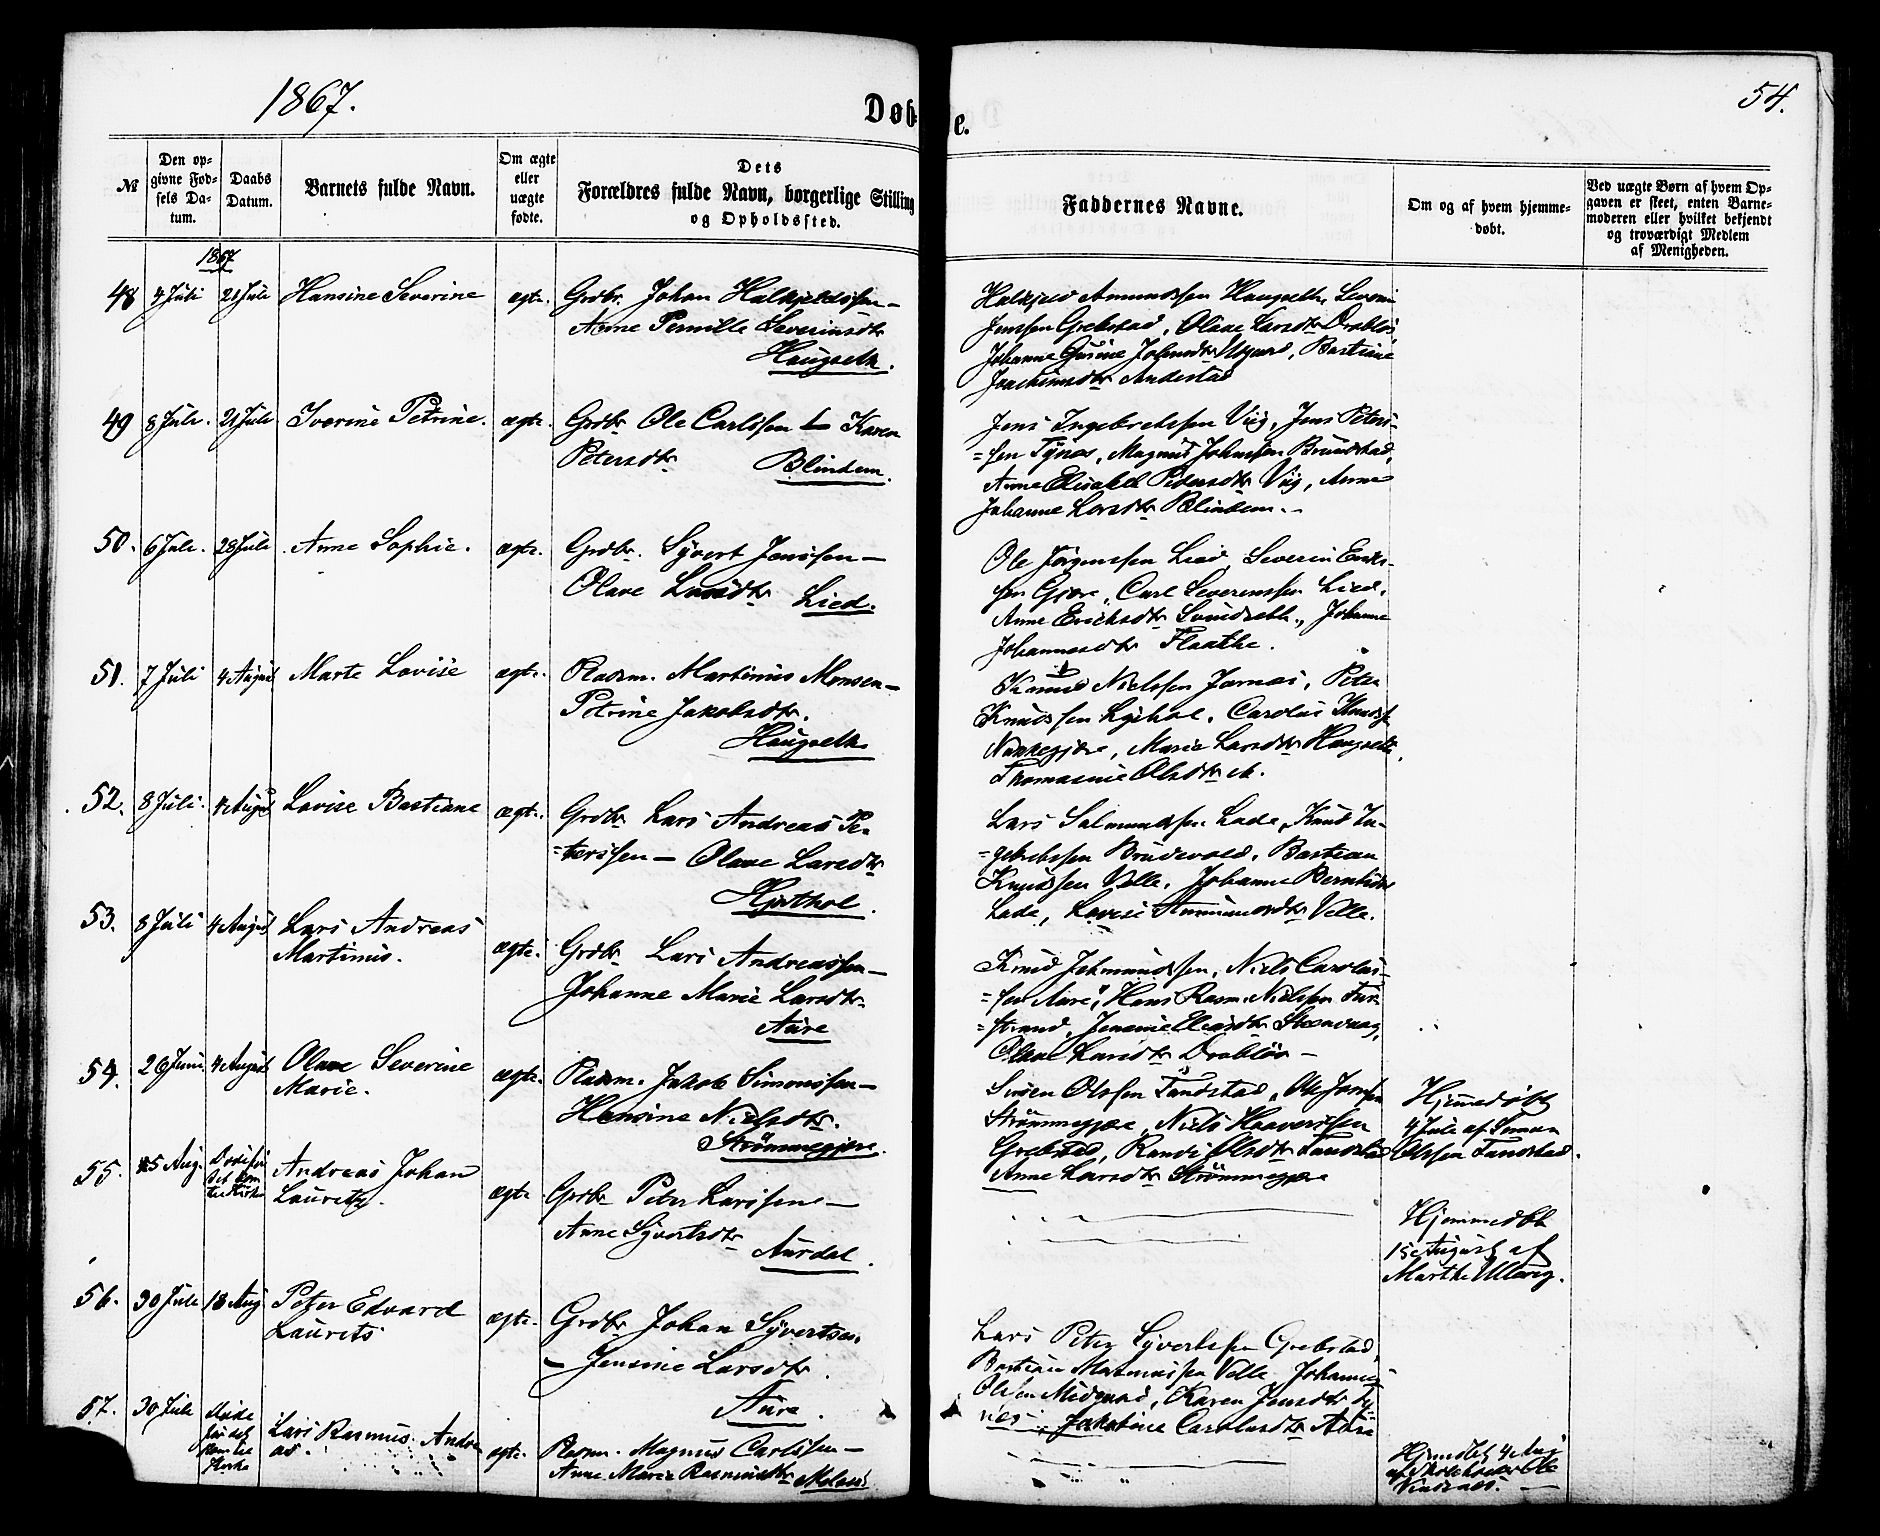 1867.
Døb-
e.
54.
№
Den op-
givne Fød-
sels Da-
tum.
Daabs
Datum.
Barnets fulde Navn.
Om ægte
eller
uægte
fødte.
Dets
Forældres fulde Navn, borgerlige Stilling
og Opholdssted.
Faddernes Navne.
Om og af hvem hjemme-
døbt.
Ved uægte Børn af hvem Op-
gaven er skeet, enten Barne-
moderen eller hvilket bekjendt
og troværdigt Medlem
af Menigheden.
1867
48 4 Juli 21 Juli Hansine Severine ægte.
Grdbr. Johan Halkjeldssen —
Anne Pernille Severinsdtr
Haugseth.
Halkjeld Amundssen Haugseth, Severin
Jenssen Grebstad, Olave Larsdtr Drabløs
Johanne Gurine Johnsdtr, Bastiane
Joachimsdtr Andestad
49 8 Juli. 21 Juli Iverine Petrine. ægte.
Grdbr Ole Carlssen – Karen
Petersdtr Blindem.
Jens Ingebretssen Viig, Jens Peters-
=sen Tynæs, Magnus Johnssen Brundstad,
Anne Elisabet Pedersdtr Viig, Anne
Johanne Larsdtr Blindem. –
50. 6 Juli. 28 Juli Anne Sophie. ægte.
Grdbr. Syvert Jenssen —
Olave Larsdtr Lied.
Ole Jørgenssen Lied, Severin Eriks-
sen Gjære, Carl Severinssen Lied,
Anne Erichsdtr, Johanne
Johannesdtr Flaathe.
51. 7 Juli 4 August Marte Lovise ægte.
Pladsm. Martinus Monsen —
Petrine Jakobsdtr.
Haugseth
Knud Nielssen Jarnæs, Peter
Knudssen, Carolus Knudss
, Marie Larsdtr Haugseth,
Thomasine Olsdtr st.
52. 8 Juli. 4 August Lovise Bastiane ægte.
Grdbr Lars Andreas Pe-
=terssen — Olave Larsdtr
Hjorthol.
Lars Salmundssen Lade, Knud In-
=gebretssen Brudevold, Bastian
Knudssen Velle, Johanne Berntsdtr
Lade, Lovise Amundsdtr Velle.
53. 8 Juli 4 August Lars Andreas
Martinus. ægte.
Grdbr Lars Andreassen —
Johanne Marie Larsdtr.
Aure
Knud Johnssen, Niels Carolus-
=sen Aure, Hans Rasm. Nielssen Tur-
=strand, Jensine Eliasdtr Steenvaag,
Olave Larsdtr Drabløs —
54. 26 Juni 4 August Olave Severine
Marie. ægte.
Pladsm. Jakob Simonssen —
Hansine Nielsdtr.
Strømmegjære.
Simen Olssen Tandstad, Ole Jonssen
Strømmegjære, Niels Haaverssen
Grebstad, Randi Olsdtr Tandstad
Anne Larsdtr Strømmegjære
Hjemmedøbt
4 Juli af Simen
Olssen Tandstad.
55. 15 Aug. Andreas Johan
Lauritz. ægte.
Grdbr Peter Larssen —
Anne Syvertsdtr
Aurdal.
Hjemmedøbt
15 August af
Marthe Ullavig.
56. 30 Juli 18 Aug. Peter Edvard
Laurits ægte.
Grdbr Johan Syvertsen.
— Jensine Larsdtr.
Aure.
Lars Peter Syvertssen Grebstad,
Bastian Martinussen Velle, Johannes
Olsen Midgaard, Karen Jensdtr Ty-
næs, Jakobine Carolusdtr Aure
57. 30 Juli Døde
før det
kom til
Kirke
Lars Rasmus Andre-
as. ægte.
Pladsm. Magnus Carlssen —
Anne Marie Rasmusdtr Melsæs
Hjemdøbt 4 Aug
af Skoleholder Ole
Vindsnes. —